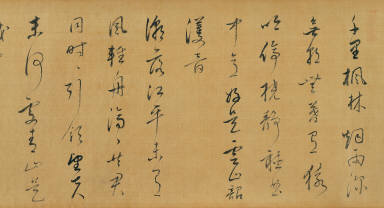 千里楓林烟雨深
無朝無暮有猿
吟停橈靜聽曲
中意好是雲山韶
濩音
潮落江平未有
風輕舟濟〻與君
同時〻引領望天
末何處青山是